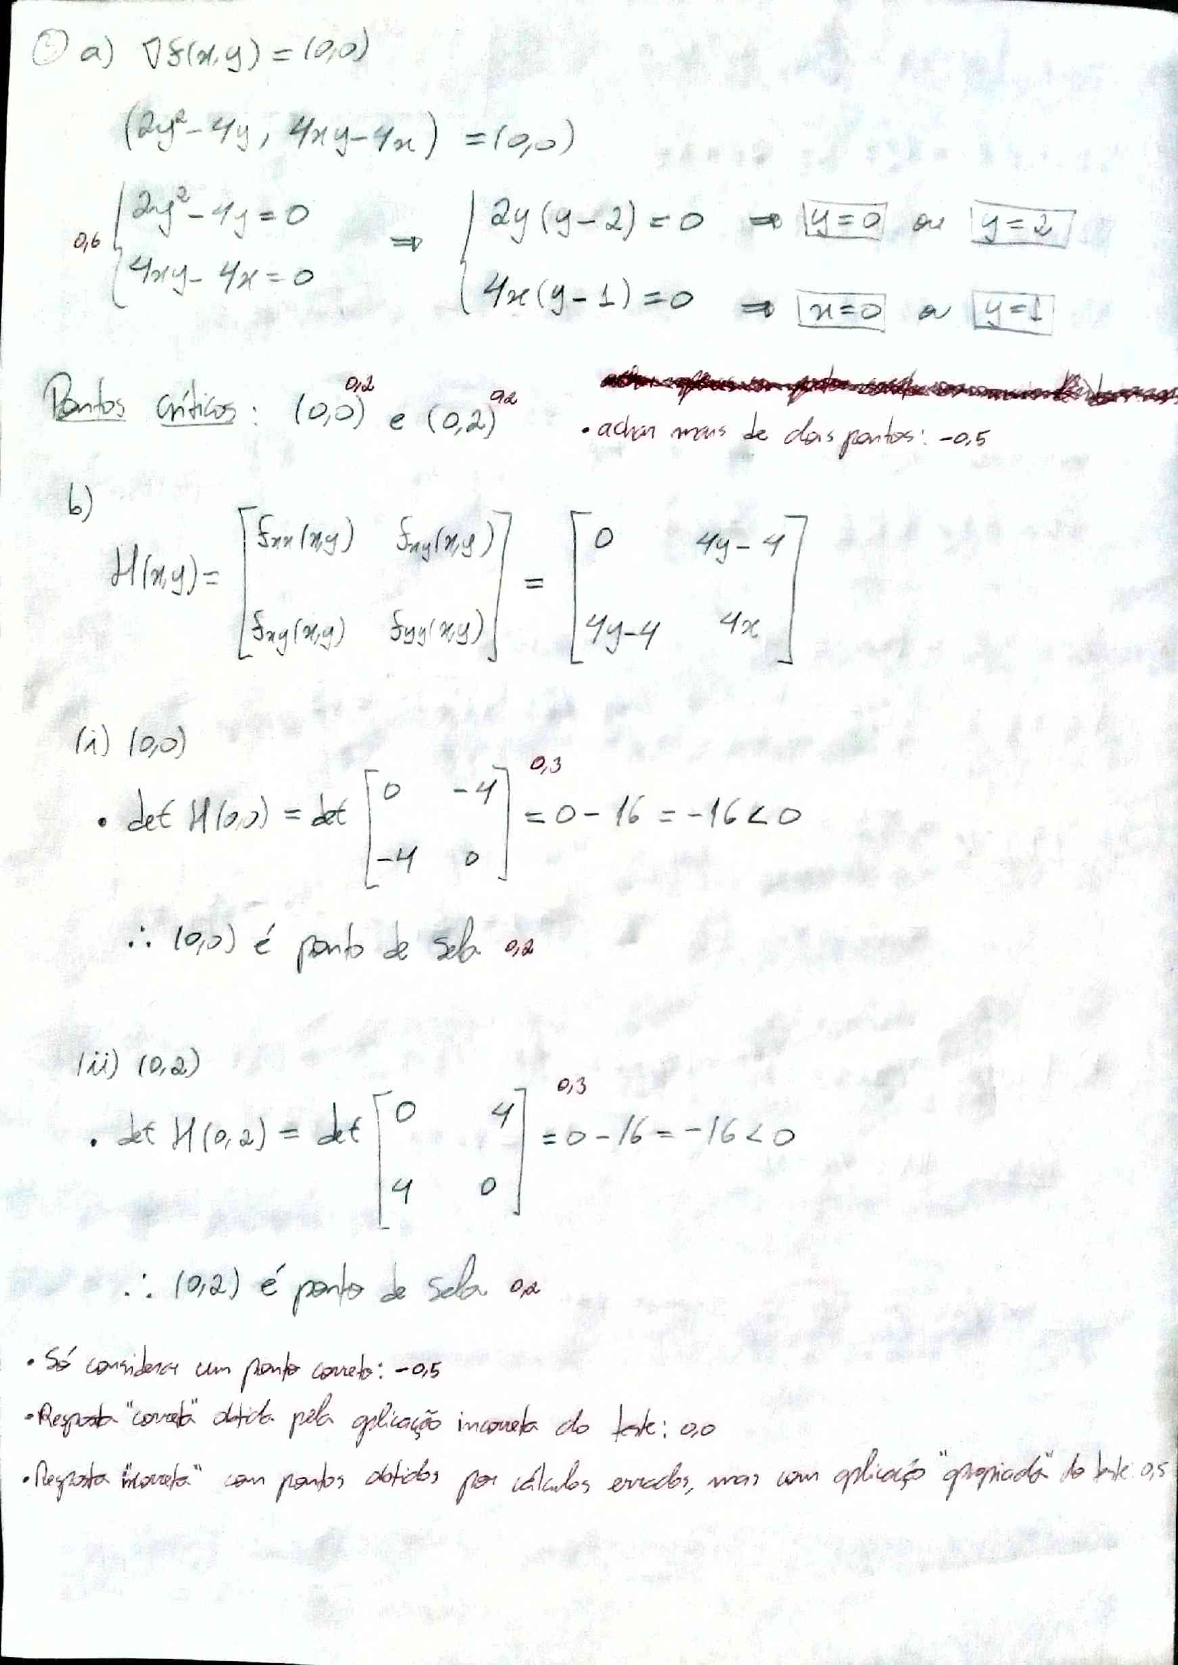 a) ∇f(x,y) = (0,0)
(2y² - 4y, 4xy - 4x) = (0,0)
0,6 { 2y² - 4y = 0 ⇒ { 2y(y-2) = 0 ⇒ y=0 ou y=2
4xy - 4x = 0 4x(y-1) = 0 ⇒ x=0 ou y=1
Pontos Críticos: (0,0) 0,2 e (0,2) 0,2
• achar mais de dois pontos: -0,5
b)
H(x,y) = [ fxx(x,y) fxy(x,y) ] = [ 0 4y-4 ]
[ fxy(x,y) fyy(x,y) ] [ 4y-4 4x ]
(i) (0,0)
• det H(0,0) = det [ 0 -4 ] 0,3 = 0 - 16 = -16 < 0
[ -4 0 ]
∴ (0,0) é ponto de sela 0,2
(ii) (0,2)
• det H(0,2) = det [ 0 4 ] 0,3 = 0 - 16 = -16 < 0
[ 4 0 ]
∴ (0,2) é ponto de sela 0,2
• Só considerar um ponto correto: -0,5
• Resposta "correta" obtida pela aplicação incorreta do teste: 0,0
• Resposta "incorreta" com pontos obtidos por cálculos errados, mas com aplicação "apropriada" do teste: 0,5